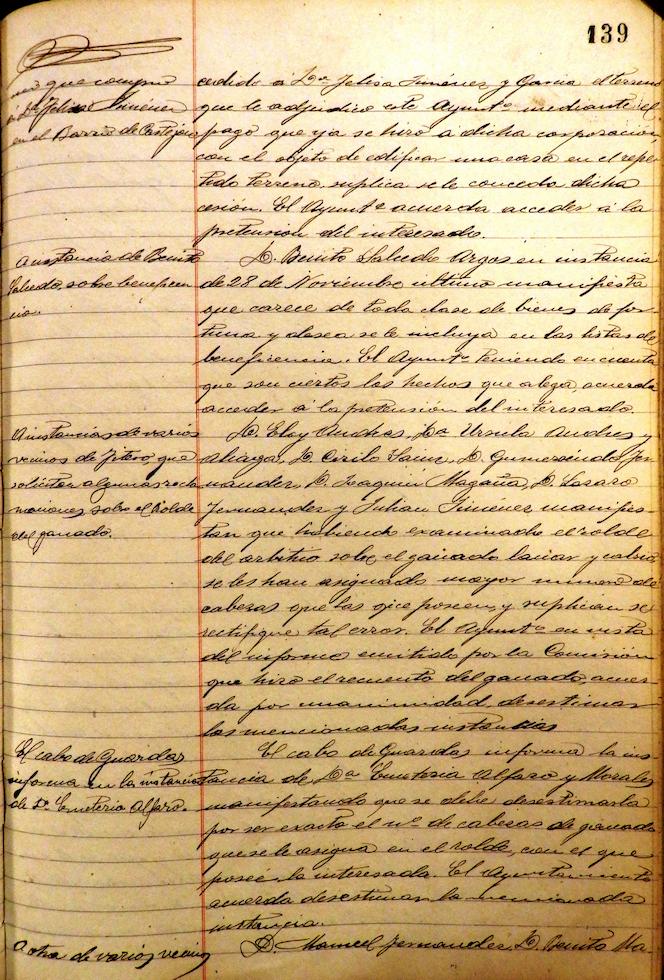 139
no que compró
a Dª Felisa Jiménez
en el Barrio de Castejón
cedido á Dª Felisa Jiménez y Garcia el terreno
que le adjudicó este Ayuntº mediante el
pago que ya se hizo á dicha corporación
con el objeto de edificar una casa en el repe
tido terreno, suplica se le conceda dicha
cesión. El Ayuntº acuerda acceder á la
pretensión del interesado.
A instancia de Benito
Salcedo, sobre beneficen
cia.
D. Benito Salcedo Urgos en instancia
de 28 de Noviembre último manifiesta
que carece de toda clase de bienes de for
tuna y desea se le incluya en las listas de
beneficencia. El Ayuntº teniendo en cuenta
que son ciertos los hechos que alega, acuerda
acceder á la pretensión del interesado.
A instancias de varios
vecinos de Fitero, que
solicitan algunas recla
maciones sobre el Rolde
del ganado.
D. Eloy Andres, Dª Ursula Andres y
Aliaga, D. Cirilo Sainz, D. Gumersindo Fer
nandez, D. Joaquin Magaña, D. Lazaro
Fernandez y Julian Jimenez manifies-
tan que habiendo examinado el rolde
del arbitrio sobre el ganado lanar y cabrio,
se les han asignado mayor numero de
cabezas que las que poseen, y suplican se
rectifique tal error. El Ayuntº en vista
del informe emitido por la Comisión
que hizo el recuento del ganado, acuer
da por unanimidad desestimar
las mencionadas instancias
El cabo de Guardas
informa en la instancia
de Dª Emeteria Alfaro.
El cabo de Guardas informa la ins-
tancia de Dª Emeteria Alfaro y Morales
manifestando que se debe desestimarla
por ser exacto el nº de cabezas de ganado
que se le asigna en el rolde, con el que
posee la interesada. El Ayuntamiento
acuerda desestimar la mencionada
instancia.
A otra de varios vecinos
D. Manuel Fernandez, D. Benito Ma-